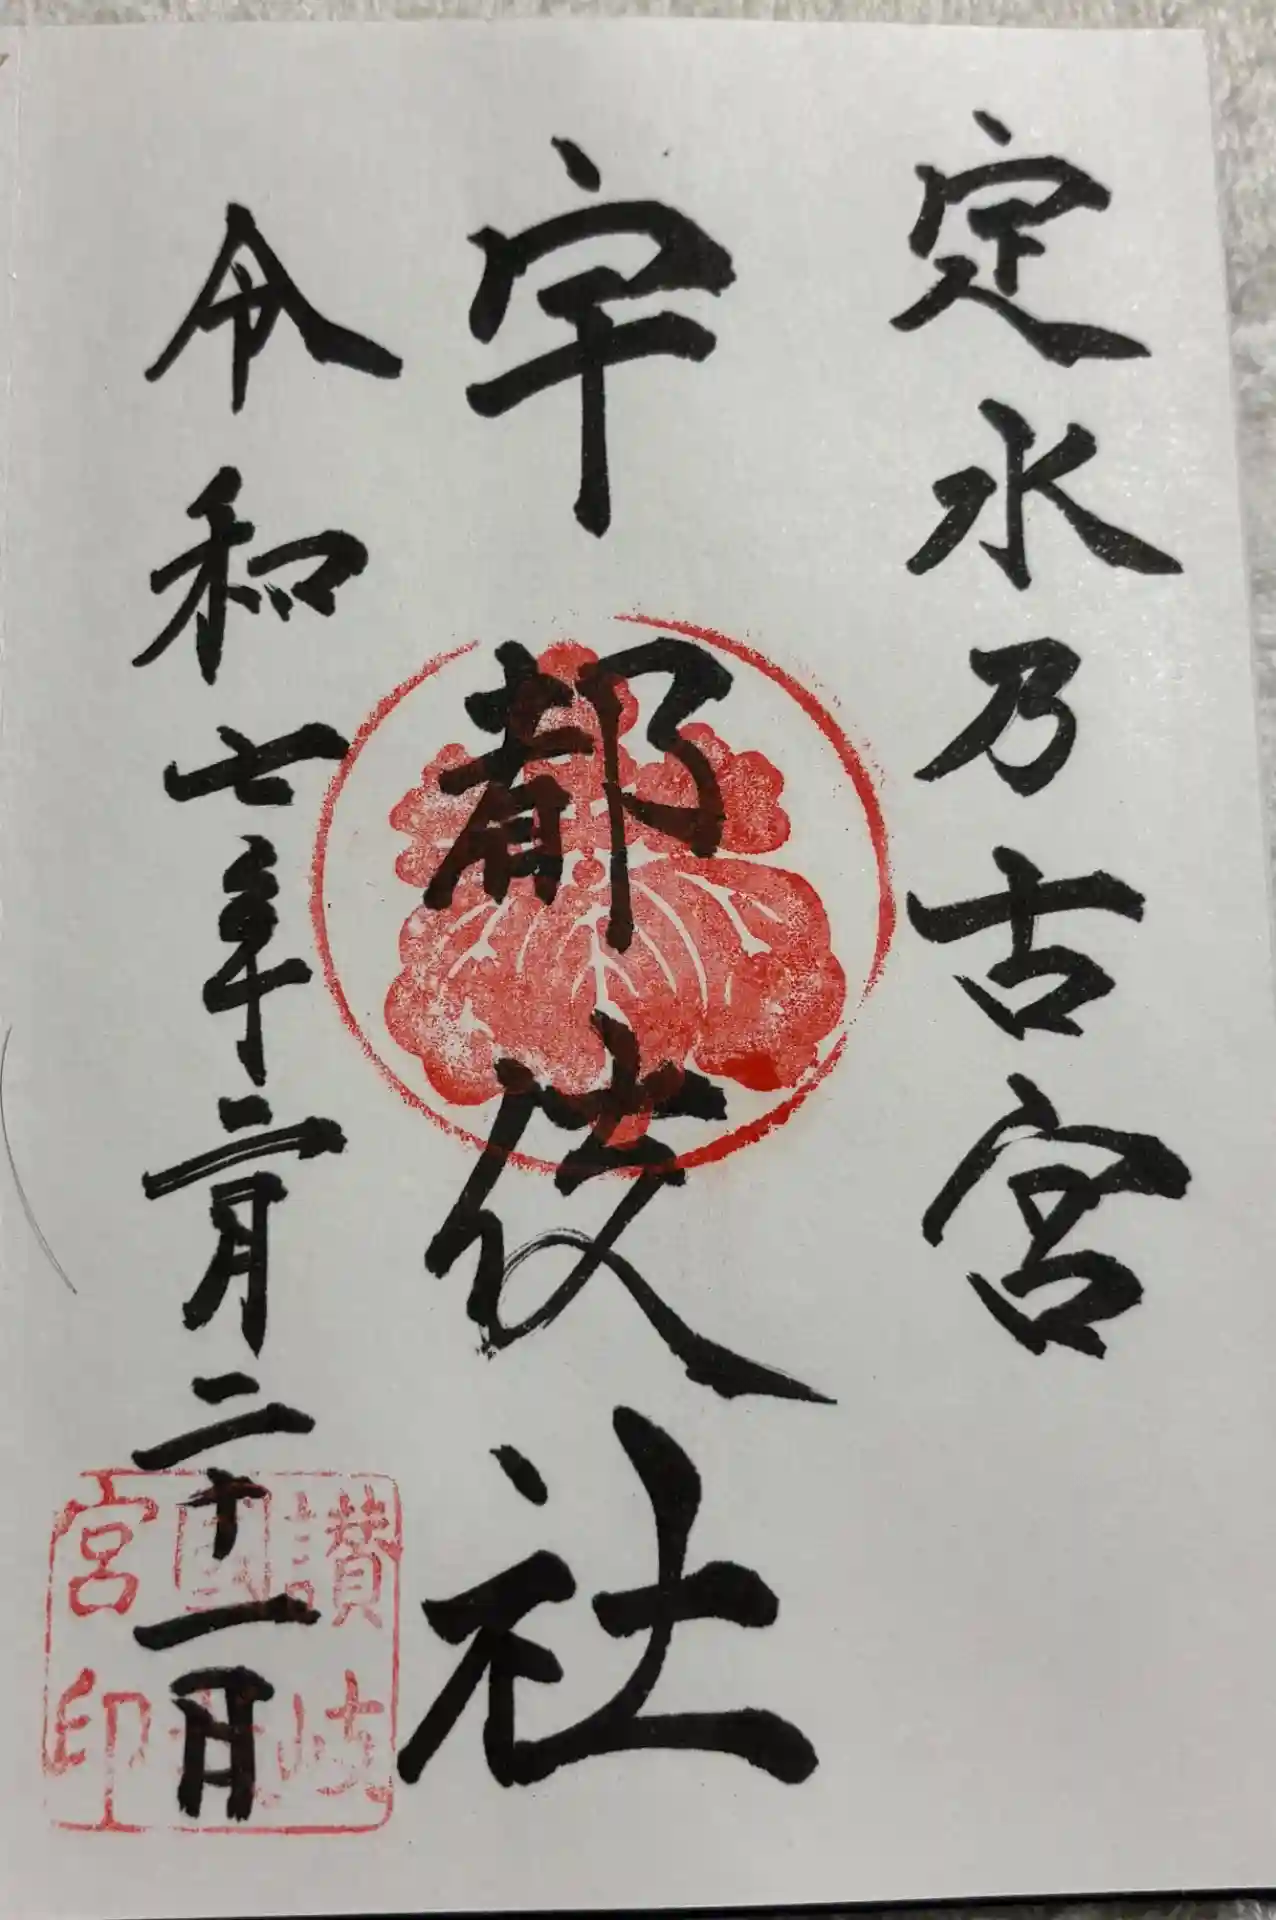 定水乃古宮
宇都伎社
令和七年二月二十一日
讃岐
國一
宮印